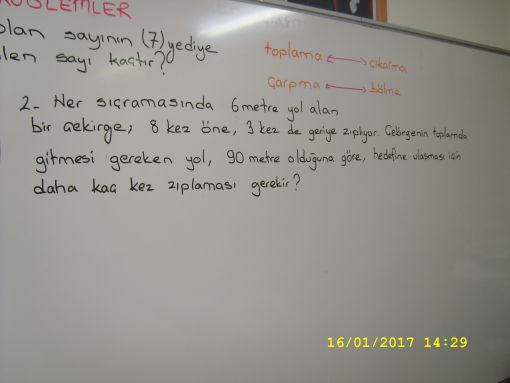 PROBLEMLER
olan sayının (7) yediye
sayı kaçtır?
toplama çıkarma
çarpma bölme
2- Her sıçramasında 6 metre yol alan
bir çekirge; 8 kez öne, 3 kez de geriye zıplıyor. Çekirgenin toplamda
gitmesi gereken yol, 90 metre olduğuna göre, hedefine ulaşması için
daha kaç kez zıplaması gerekir?
16/01/2017 14:29